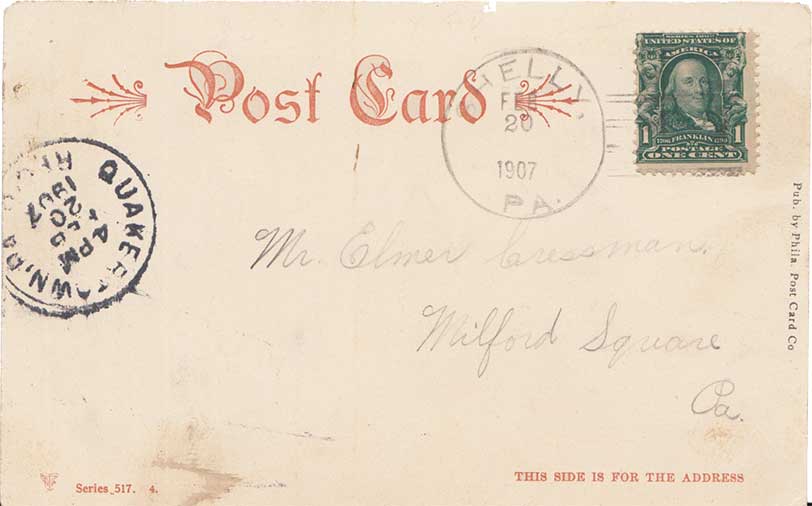 Post Card
SHELLY,
FEB
20
1907
PA.
SERIES 1902
UNITED STATES OF
AMERICA
1 1
1706 FRANKLIN 1790
POSTAGE
ONE CENT
QUAKERTOWN, PA.
4 PM
1907
Mr. Elmer Cressman.
Milford Square
Pa.
Pub. by Phila. Post Card Co.
Series 517. 4.
THIS SIDE IS FOR THE ADDRESS